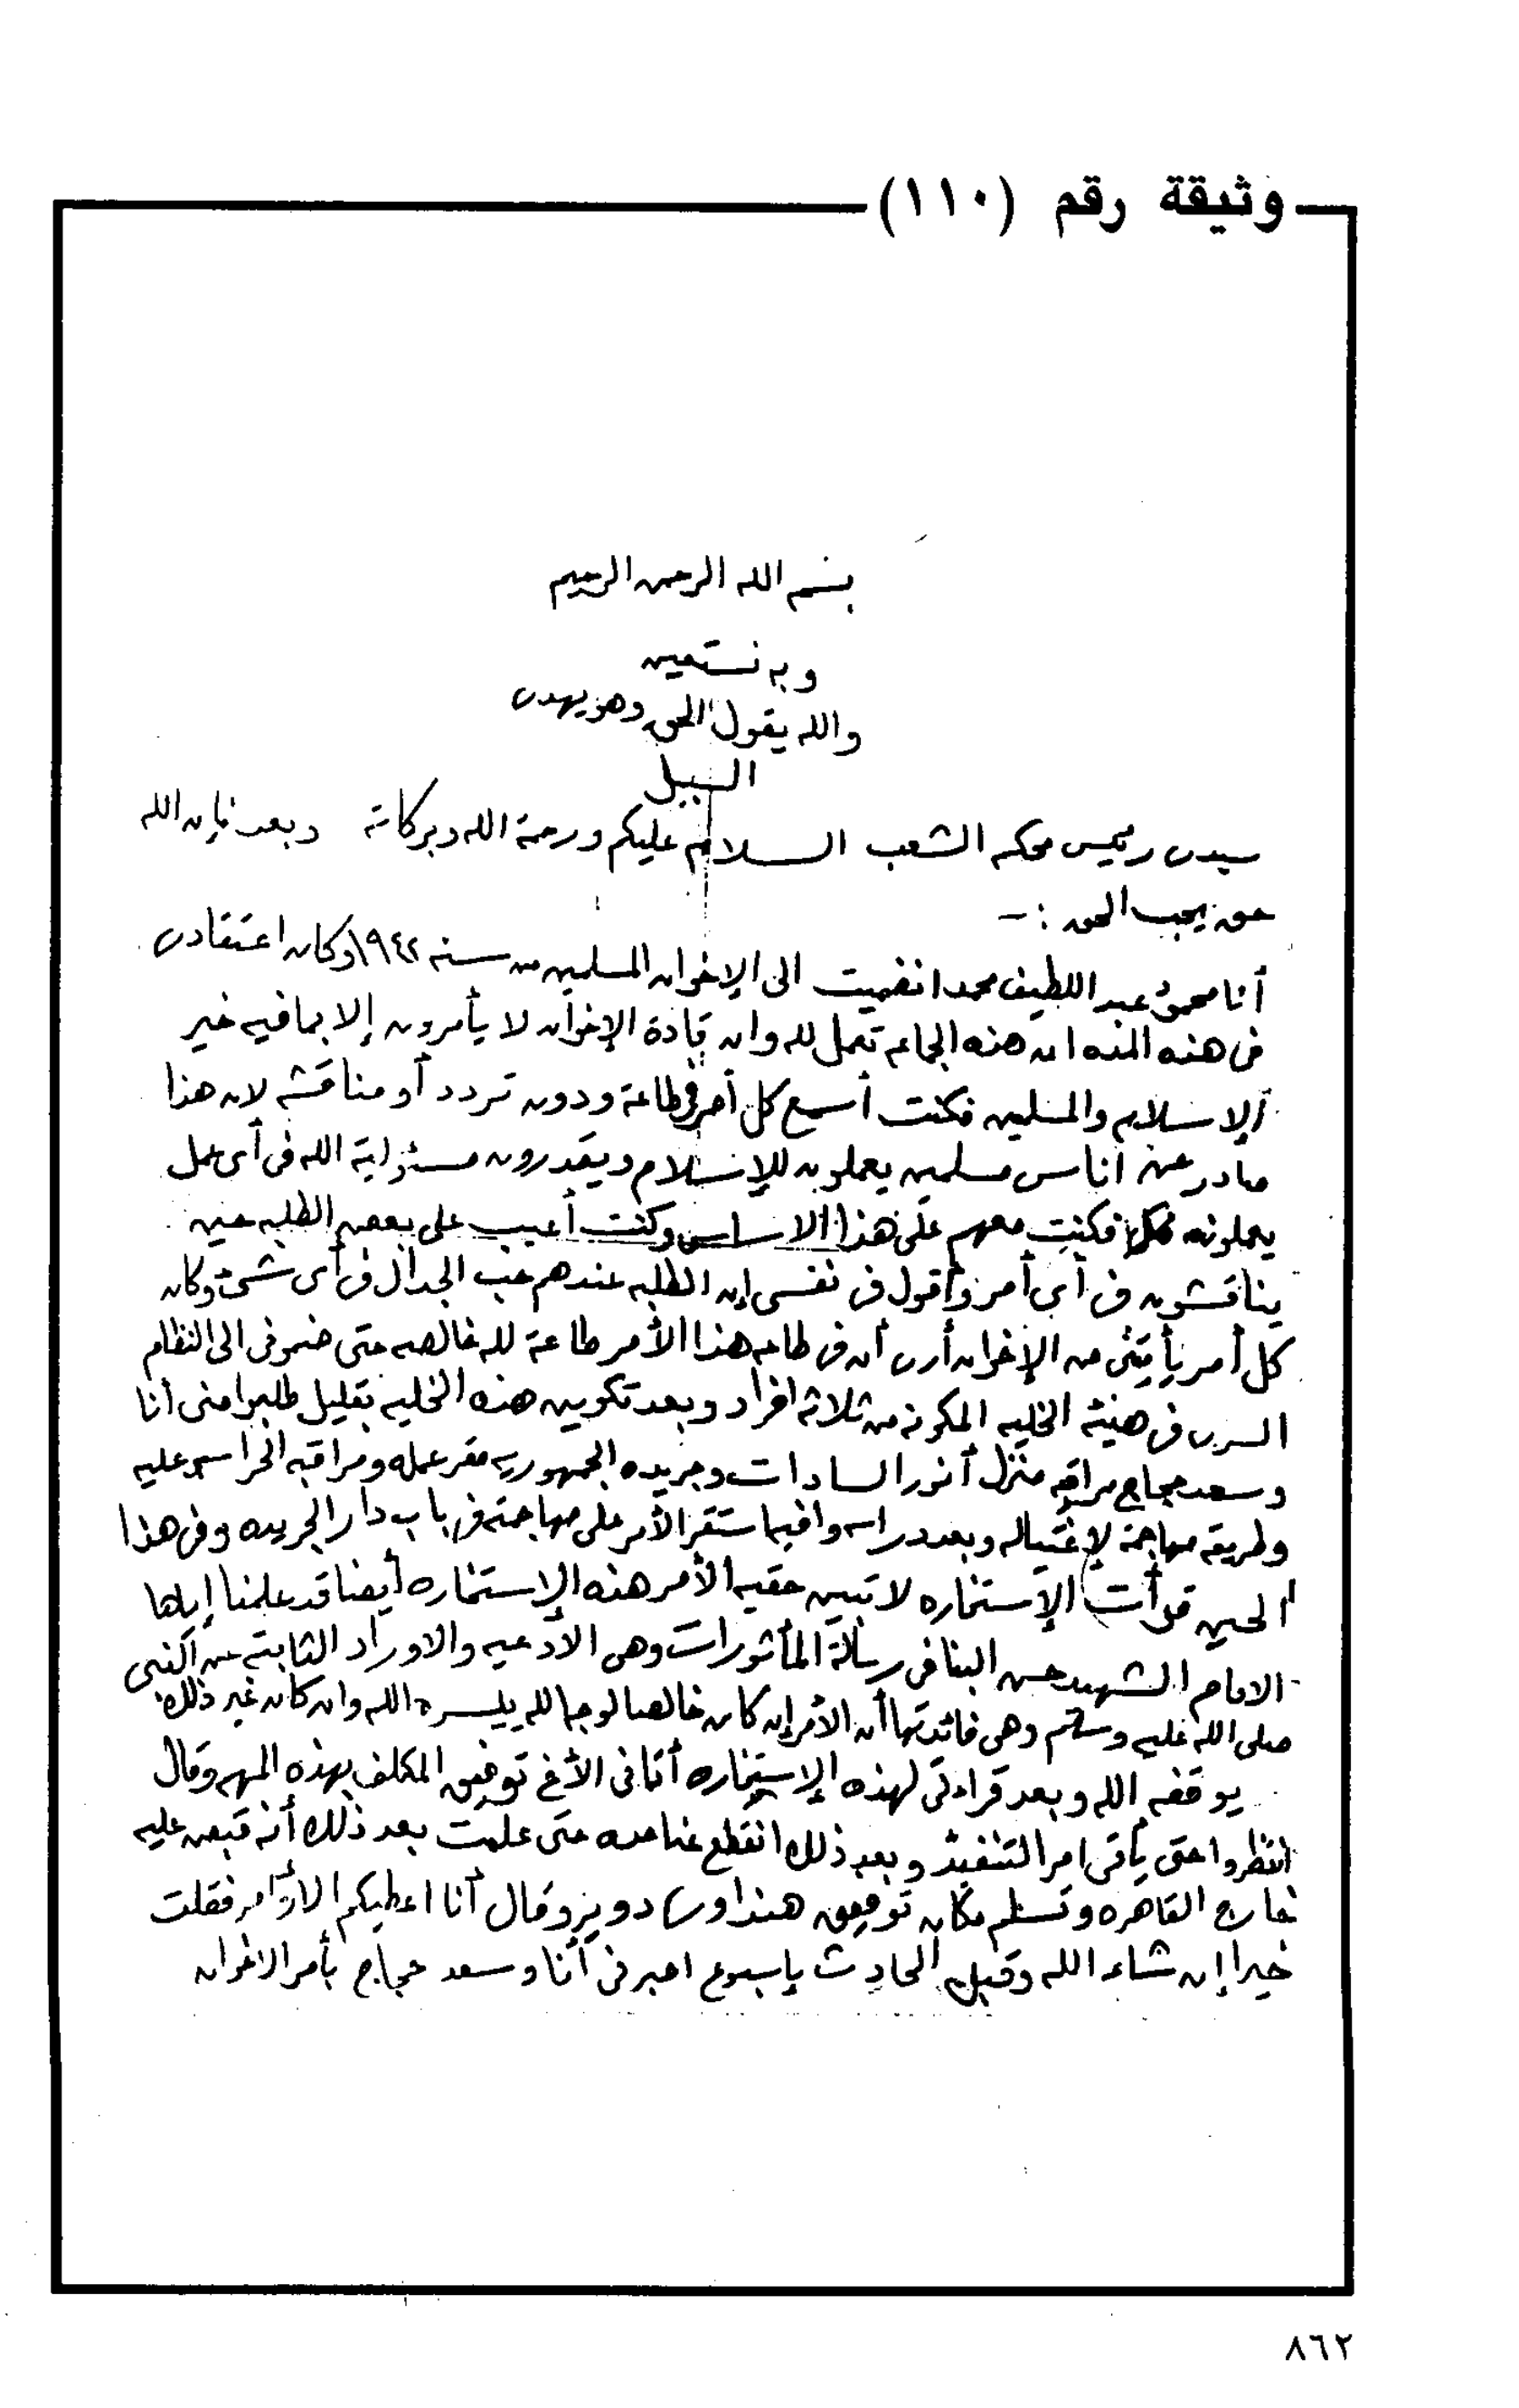 وثيقة رقم (١١٠)
بسم الله الرحمن الرحيم
وبه نستعين
والله يقول الحق وهو يهدى
السبيل
سيدى رئيس محكمه الشعب السلام عليكم ورحمة الله وبركاته وبعد فإن الله
حق يحب الحق :ـ
أنا محمود عبد اللطيف محمد انضميت الى الإخوان المسلمين من سنه ١٩٤٢ وكان اعتقادى
فى هذه المده ان هذه الجماعه تعمل لله وان قادة الإخوان لا يأمرون إلا بما فيه خير
الإسلام والمسلمين فكنت أسمع كل أمر فى طاعة ودون تردد أو مناقشه لان هذا
صادر عن أناس مسلمين يعملون للإسلام ويقدرون مسئولية الله فى أى عمل
يعملونه فكنت معهم على هذا الاساس وكنت أعيب على بعض الطلبه حين
يناقشون فى أى أمر وأقول فى نفسى إن الطلبه عندهم حب الجدال فى أى شىء وكان
كل أمر يأتينى من الإخوان أرى أن فى طاعه هذا الأمر طاعة لله خالصه حتى ضمونى الى النظام
السرى فى هيئة الخليه المكونه من ثلاثه افراد وبعد تكوين هذه الخليه بقليل طلبوا منى أنا
وسعد حجاج مراقبه منزل أنور السادات وجريده الجمهوريه مقر عمله ومراقبه الحراسه عليه
وطريقه مهاجمة لإغتياله وبعد دراسه وافيه استقر الأمر على مهاجمته فى باب دار الجريده وفى هذا
الحين قرأت الإستخاره لاتبين حقيه الأمر هذه الإستخاره أيضا قد علمنا إياها
الامام الشهيد حسن البنا فى رسالة المأثورات وهى الأدعيه والاوراد الثابته عن النبى
صلى الله عليه وسلم وهى فائدتها أن الأمر إن كان خالصا لوجه الله ييسره الله وان كان غير ذلك
يوقفه الله وبعد قراءتى لهذه الإستخاره أتانى الأخ توفيق المكلف بهذه المهمه وقال
انتظروا حتى يأتى امر التنفيذ وبعد ذلك انقطع عنا مده حتى علمت بعد ذلك أنه قبض عليه
خارج القاهره وتسلم مكان توفيق هنداوى دوير وقال أنا اعطيكم الاوامر فقلت
خيرا إن شاء الله وقبل الحادث بإسبوع اخبرنى أنا وسعد حجاج بأمر الاخوان
٨٦٢